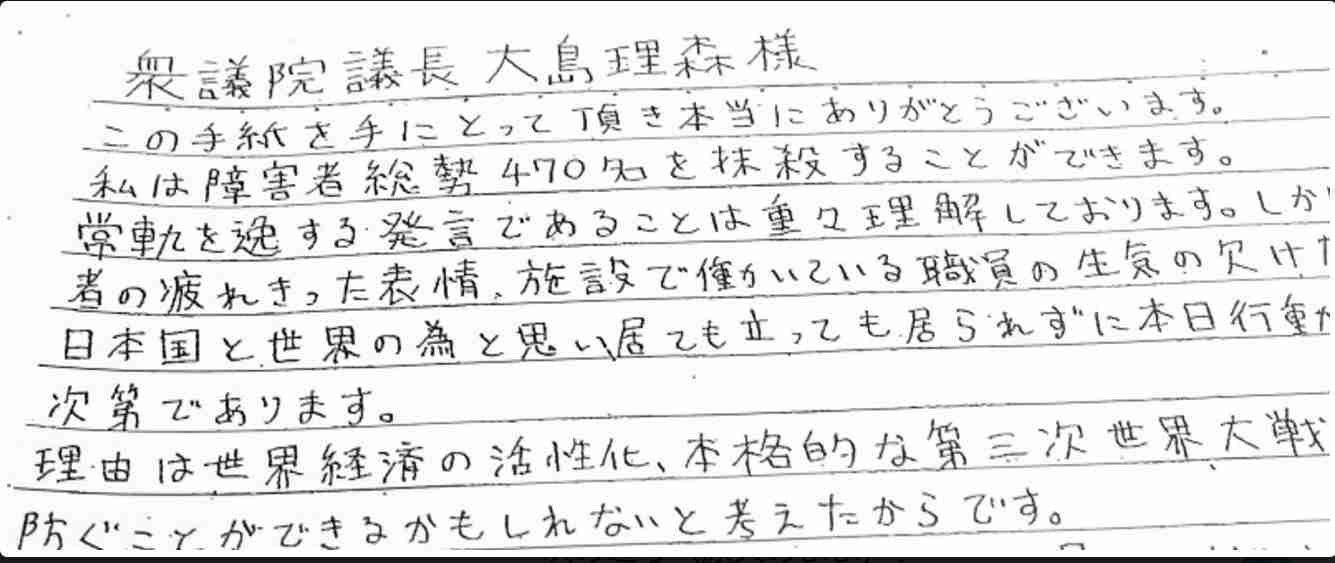 衆議院議長大島理森様
この手紙を手にとって頂き本当にありがとうございます。
私は障害者総勢470名を抹殺することができます。
常軌を逸する発言であることは重々理解しております。しか
者の疲れきった表情、施設で働いている職員の生気の欠けた
日本国と世界の為と思い、居ても立っても居られずに本日行動
次第であります。
理由は世界経済の活性化、本格的な第三次世界大戦
防ぐことができるかもしれないと考えたからです。